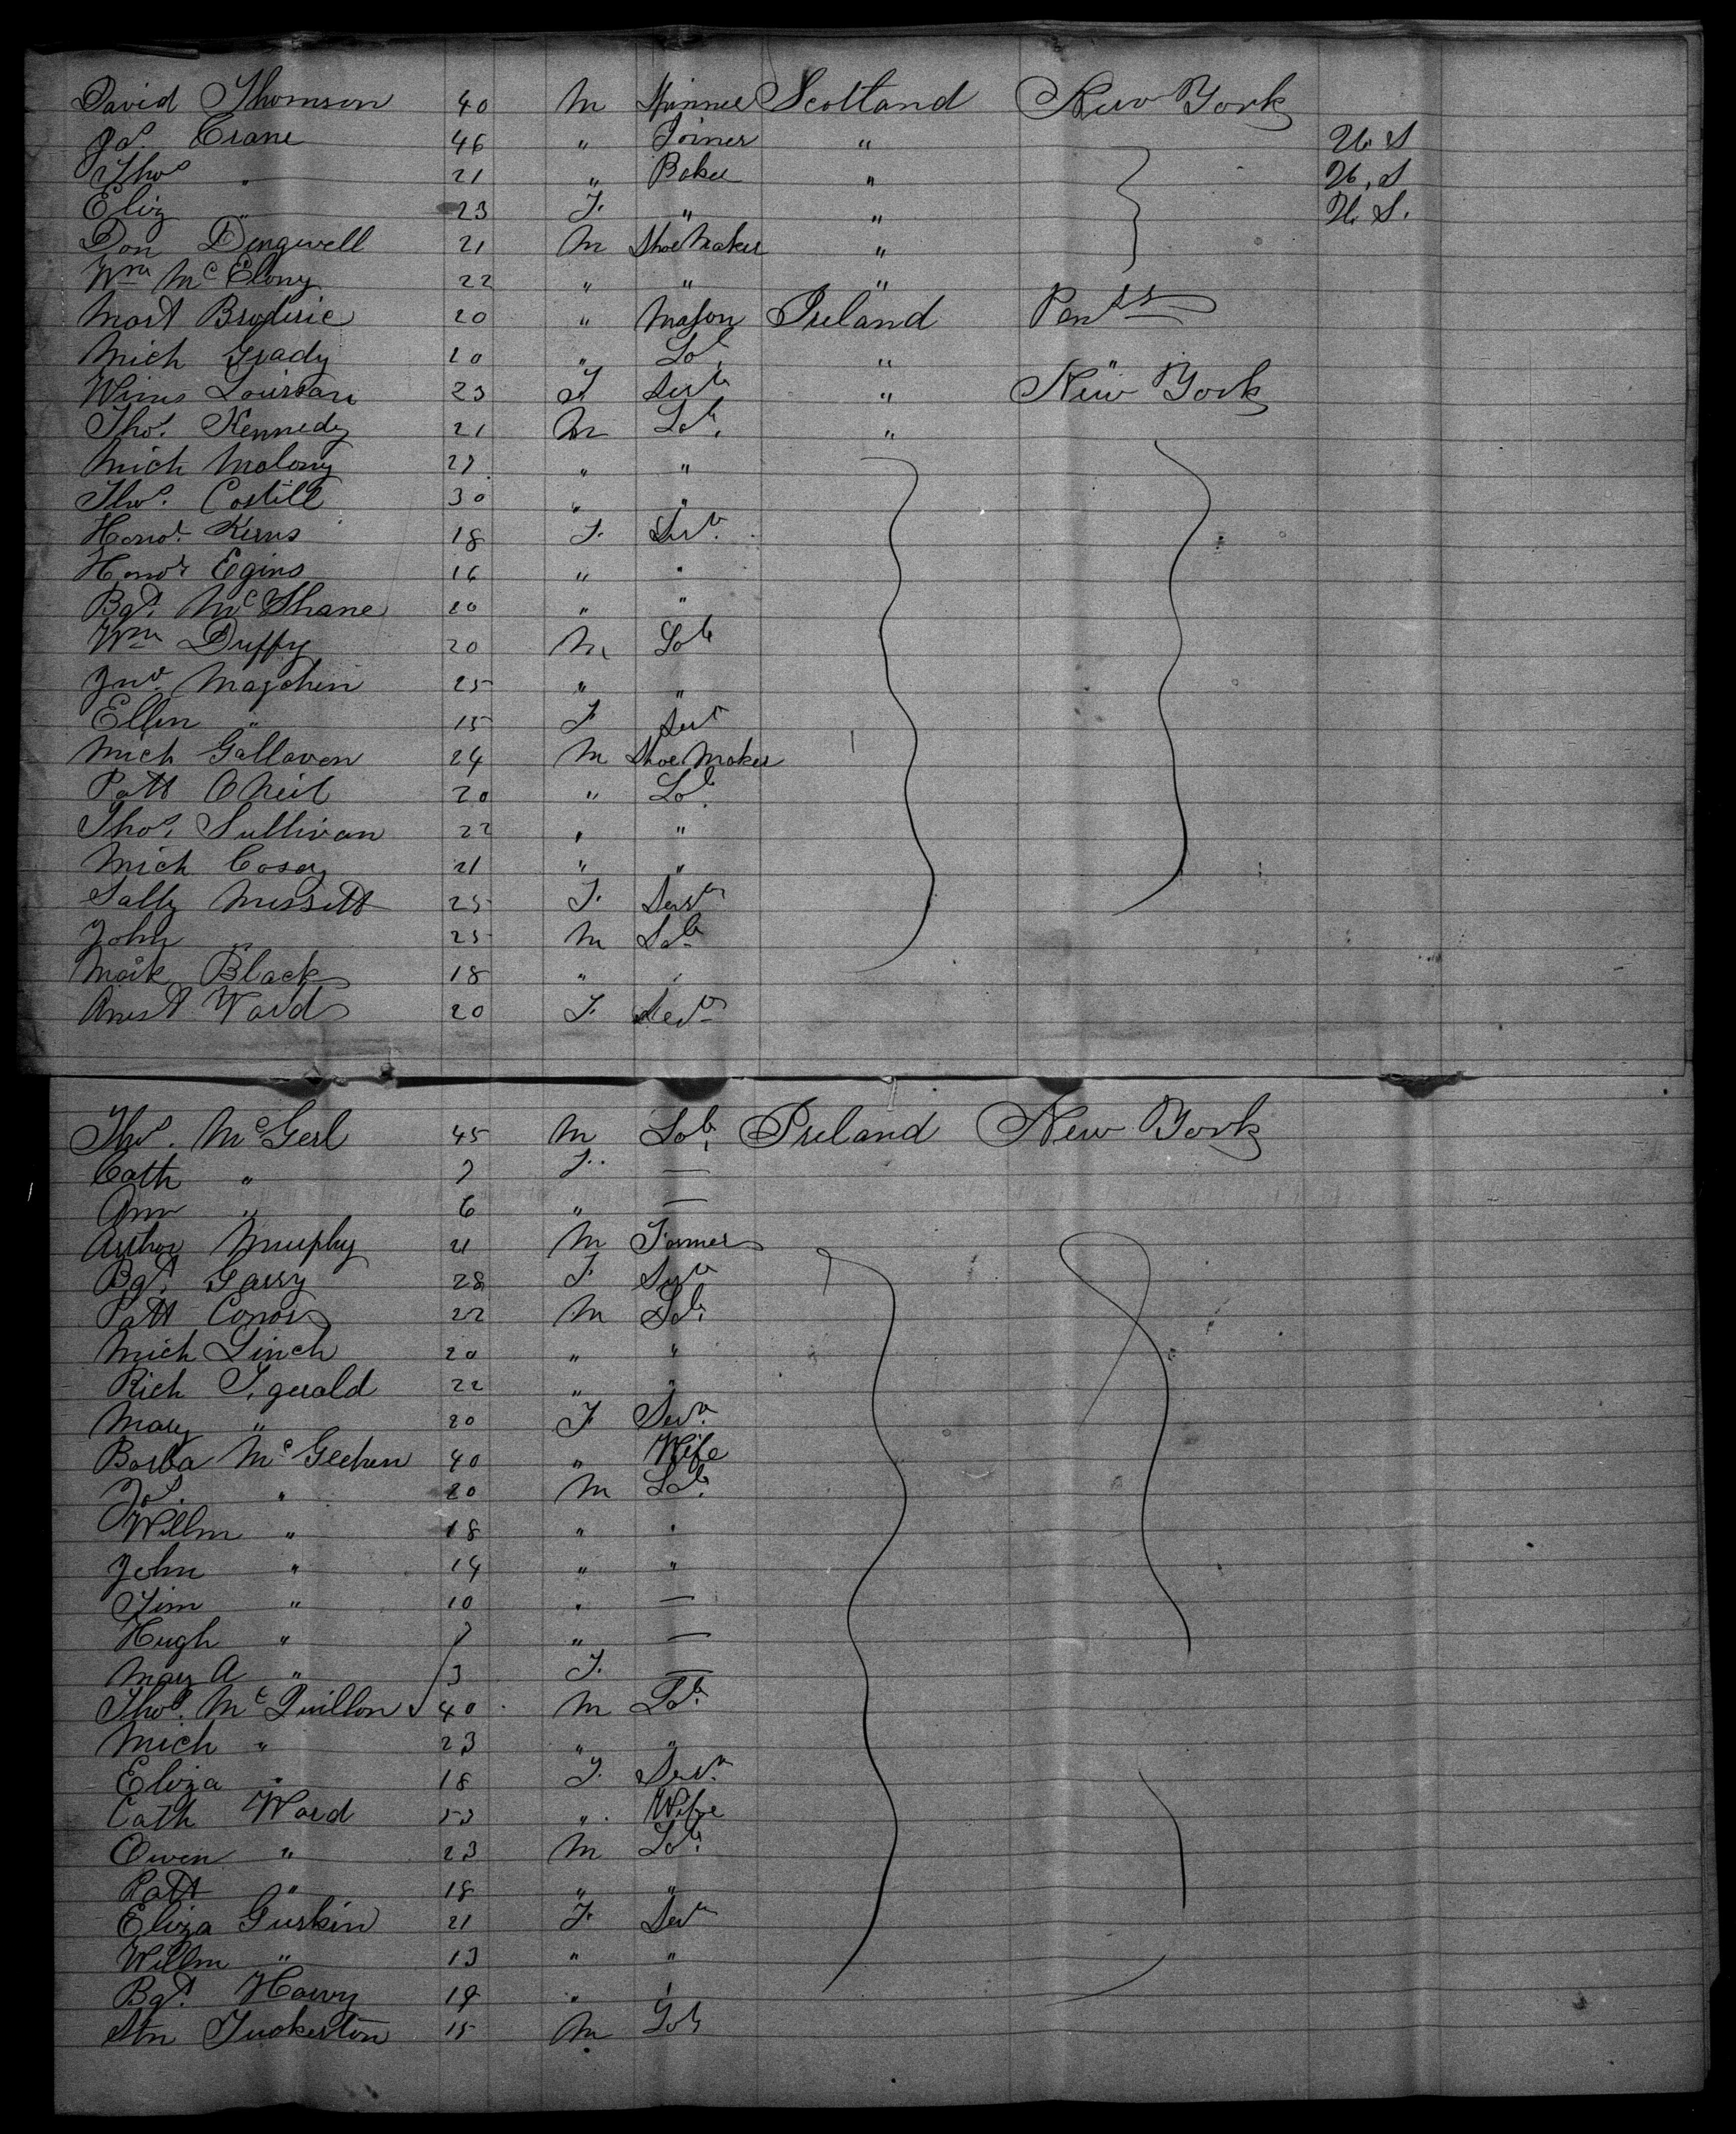 David Thomson 40 M Spinner Scotland New York
Jas. Crane 46 " Joiner " U. S
Thos " 21 " Baker " U. S
Eliz " 23 F. " " U. S.
Don Dengwell 21 M Shoe Maker "
Wm McElony 22 " " "
Mart Broderic 20 " Mason Ireland Penss
Mich Grady 20 " Lab. "
Winns 23 F Servt " New York
Thos. Kennedy 21 M Lab. "
Mich Malony 27 " "
Thos. Costill 30 " "
Honor. Kerns 18 F. Serv.
Honor Egins 16 " "
Bgt. McShane 20 " "
Wm Duffy 20 M Lab
Jno. Magohin 25 " "
Ellen " 15 F Serv
Mich Gallaven 24 M Shoe Maker
Patt ONeil 20 " Lab.
Thos. Sullivan 22 " "
Mich Casey 21 " "
Sally Missett 25 F. Serv
John " 25 M Lab
Mark Black 18 " "
Ward 20 F. Serv
Thos. McGerl 45 M Lab. Ireland New York
Cath " 7 F. —
Ann " 6 " —
Arthor Murphy 21 M Farmer
Bgt. Garry 28 F Serv
Patt Conors 22 M Lab.
Mich Linch 20 " "
Rich F. gerald 22 " "
Mary " 20 F Serv.
Barba McGeehen 40 " Wife
Jas. " 20 M Lab.
Willm " 18 " "
John " 14 " "
Jim " 10 " —
Hugh " 7 " —
Mary A " 3 F. —
Thos. McQuillon 40 M Lab.
Mich " 23 " "
Eliza " 18 F. Serv.
Cath Ward 53 " Wife
Owen " 23 M Lab.
Patt " 18 " "
Eliza Guskin 21 F. Serv
Willm " 13 " "
Bgt. Harvy 19 " "
Stn Tuckerton 15 M Lab